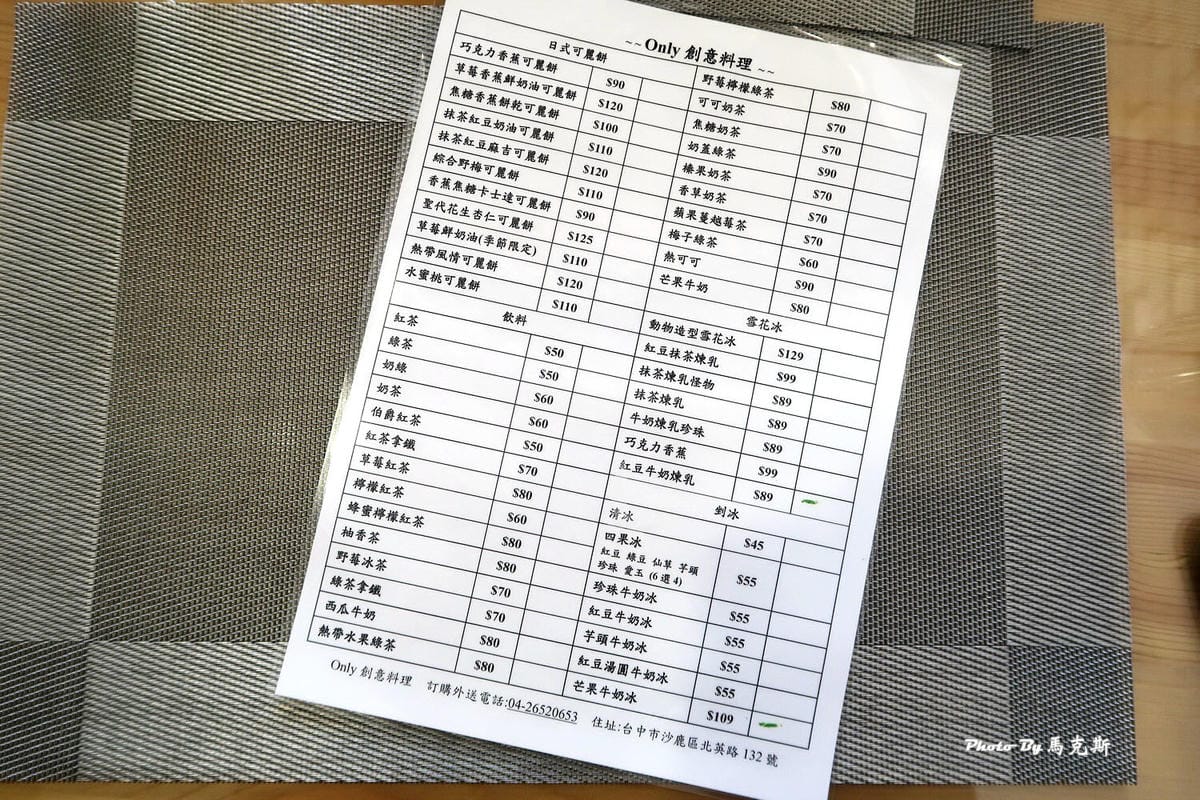 ~~Only 創意料理~~
日式可麗餅
巧克力香蕉可麗餅 $90
草莓香蕉鮮奶油可麗餅 $120
焦糖香蕉餅乾可麗餅 $100
抹茶紅豆奶油可麗餅 $110
抹茶紅豆麻吉可麗餅 $120
綜合野梅可麗餅 $110
香蕉焦糖卡士達可麗餅 $90
聖代花生杏仁可麗餅 $125
草莓鮮奶油(季節限定) $110
熱帶風情可麗餅 $120
水蜜桃可麗餅 $110
飲料
紅茶 $50
綠茶 $50
奶綠 $60
奶茶 $60
伯爵紅茶 $50
紅茶拿鐵 $70
草莓紅茶 $80
檸檬紅茶 $60
蜂蜜檸檬紅茶 $80
柚香茶 $80
野莓冰茶 $70
綠茶拿鐵 $70
西瓜牛奶 $80
熱帶水果綠茶 $80
野莓檸檬綠茶 $80
可可奶茶 $70
焦糖奶茶 $70
奶蓋綠茶 $90
榛果奶茶 $70
香草奶茶 $70
蘋果蔓越莓茶 $70
梅子綠茶 $60
熱可可 $90
芒果牛奶 $80
雪花冰
動物造型雪花冰 $129
紅豆抹茶煉乳 $99
抹茶煉乳怪物 $89
抹茶煉乳 $89
牛奶煉乳珍珠 $89
巧克力香蕉 $99
紅豆牛奶煉乳 $89
剉冰
清冰 $45
四果冰 $55
紅豆 綠豆 仙草 芋頭
珍珠 愛玉 (6選4)
珍珠牛奶冰 $55
紅豆牛奶冰 $55
芋頭牛奶冰 $55
紅豆湯圓牛奶冰 $55
芒果牛奶冰 $109
Only 創意料理 訂購外送電話:04-26520653 住址:台中市沙鹿區北英路 132 號
Photo By 馬克斯